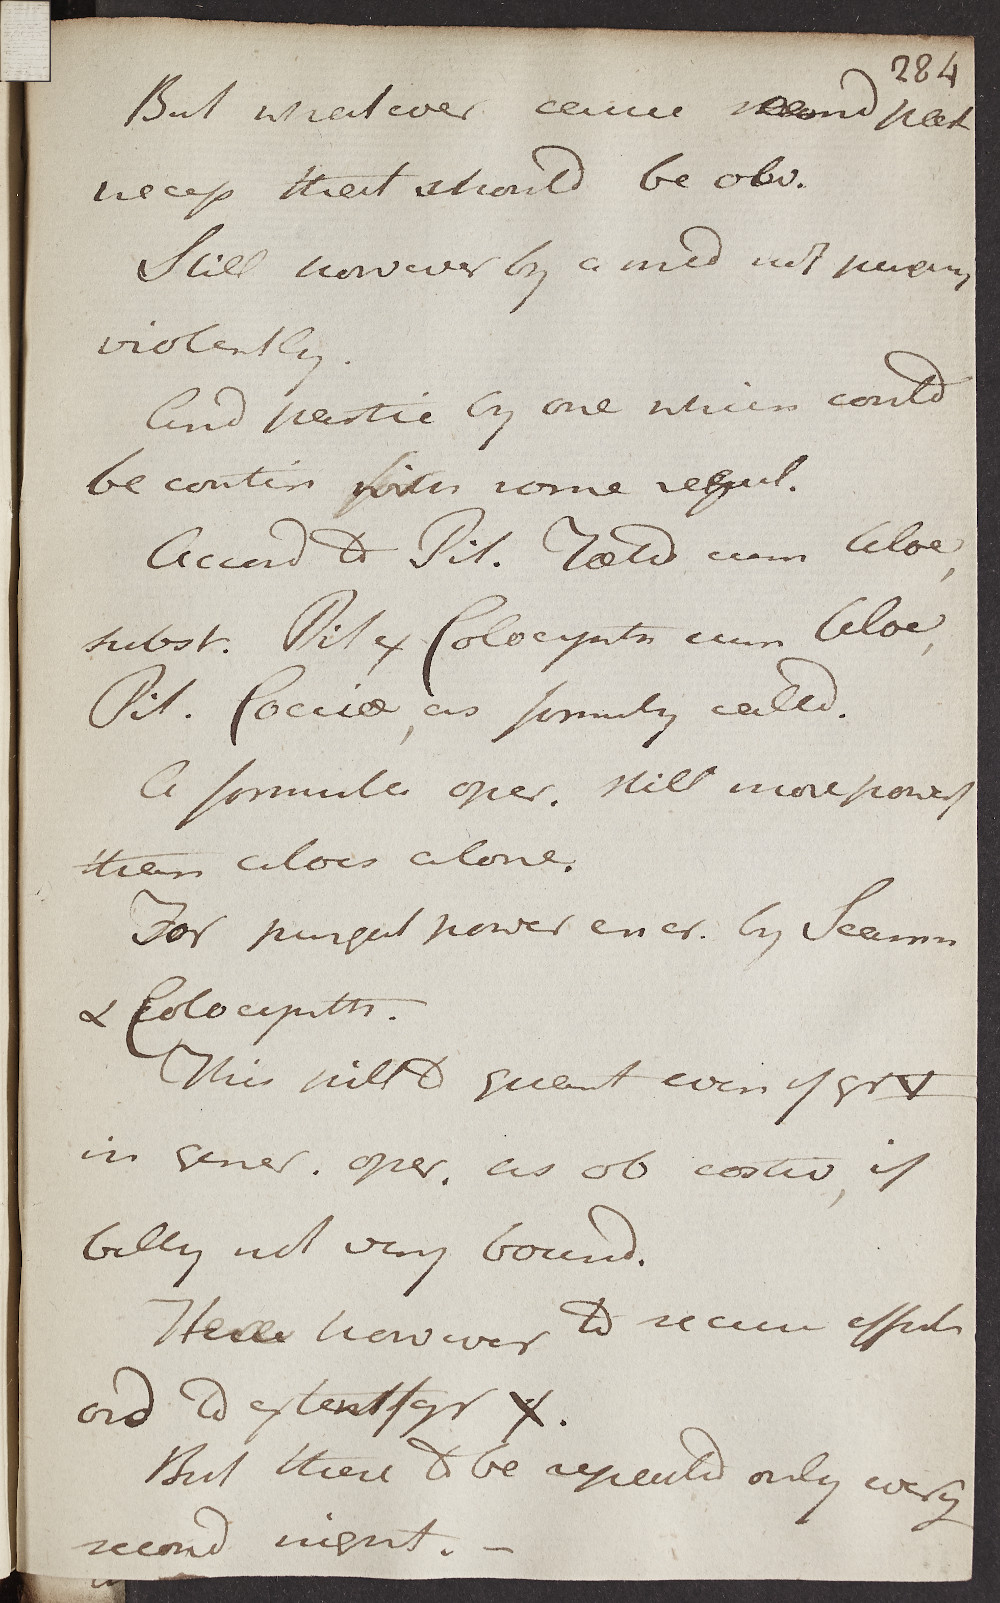 284
But whatever cause
necess that should be obv.
Still however by a med not purging
violently.
And partic by one which could
be contin with some regul.
Accord to Pil. Fœtid cum Aloe,
subst. Pil ex Colocynth cum Aloe,
Pil. Cocciæ, as formerly called.
A formula oper. still more powerf
than aloes alone.
For purgat power encr. by Scamm
& Colocynth.
This pill to quant even of gr V
in gener. oper. as ob costiv, if
belly not very bound.
Here however to secure effects
ord to extent of gr X.
But there to be repeated only every
second night. –